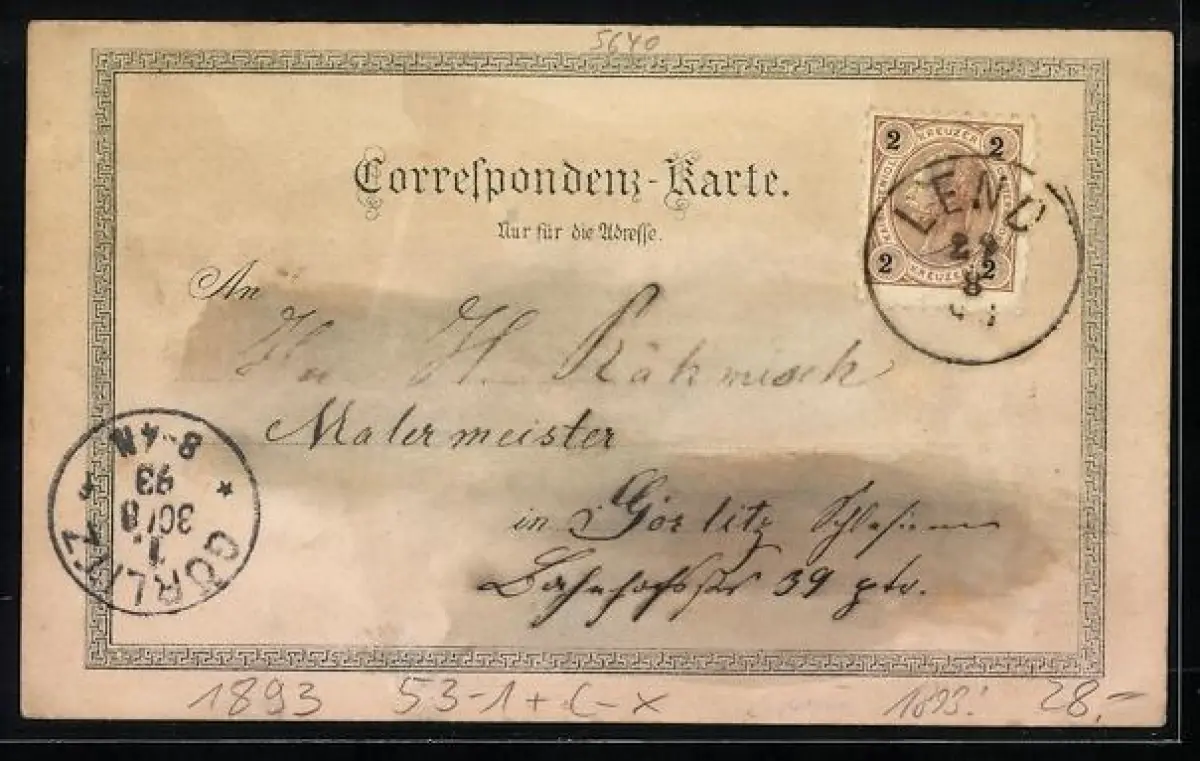 5640
Correspondenz-Karte.
Nur für die Adresse.
2 KREUZER 2
2 KREUZER 2
LEND
29
8
An
H. Rähmisch
Malermeister
in Görlitz Schlesien
Bahnhofstr 39 ptr.
GÖRLITZ
1
30/8
93
8-4N
1893 53-1+C-X 1893! 28.-